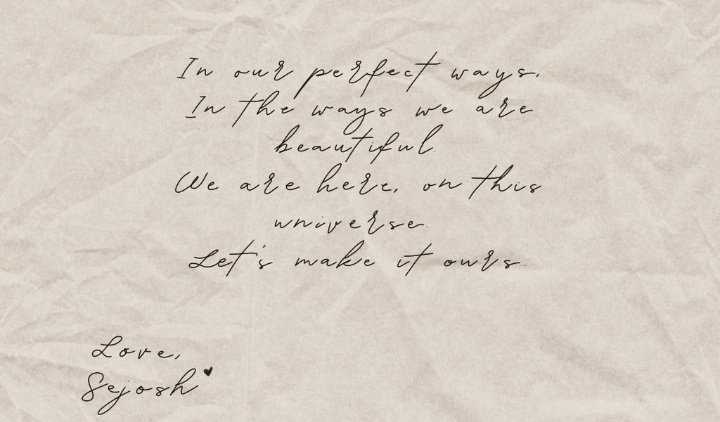 In our perfect ways.
In the ways we are
beautiful.
We are here, on this
universe.
Let's make it ours.
Love,
Sejosh ♥